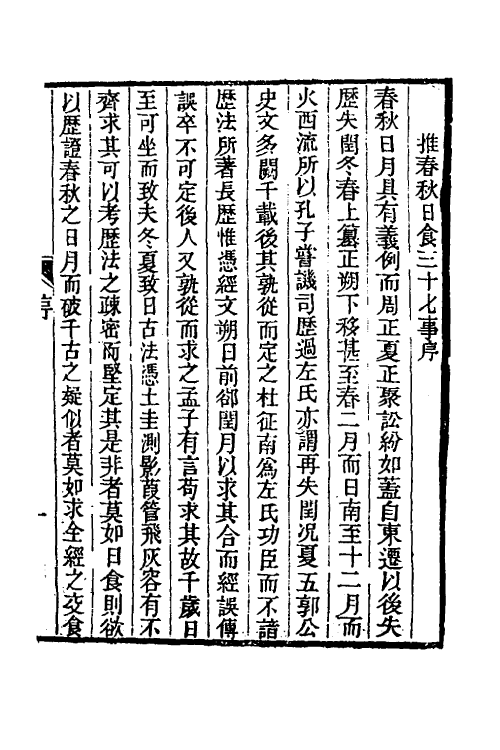 推春秋日食三十七事序
春秋日月具有義例而周正夏正聚訟紛如蓋自東遷以後失
歷失閏冬春上篡正朔下移甚至春二月而日南至十二月而
火西流所以孔子嘗譏司歷過左氏亦謂再失閏况夏五郭公
史文多闕千載後其孰從而定之杜征南為左氏功臣而不諳
歷法所著長歷惟憑經文朔日前郤閏月以求其合而經誤傳
誤卒不可定後人又孰從而求之孟子有言苟求其故千歲日
至可坐而致夫冬夏致日古法憑土圭測影葭管飛灰容有不
齊求其可以考歷法之疎密而堅定其是非者莫如日食則欲
以歷證春秋之日月而破千古之疑似者莫如求全經之交食
序
一